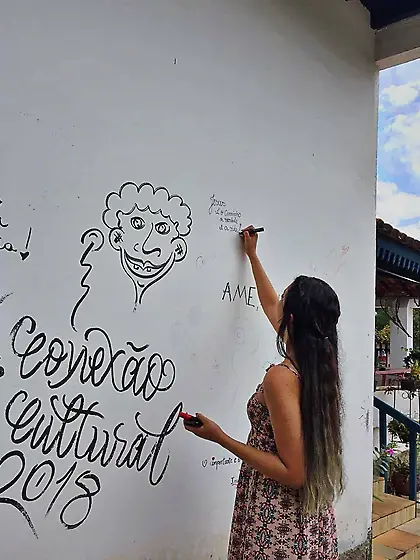 Jesus
é o Caminho
a verdade
e a vida
AME,
Conexão
Cultural
2018
♡ importante é